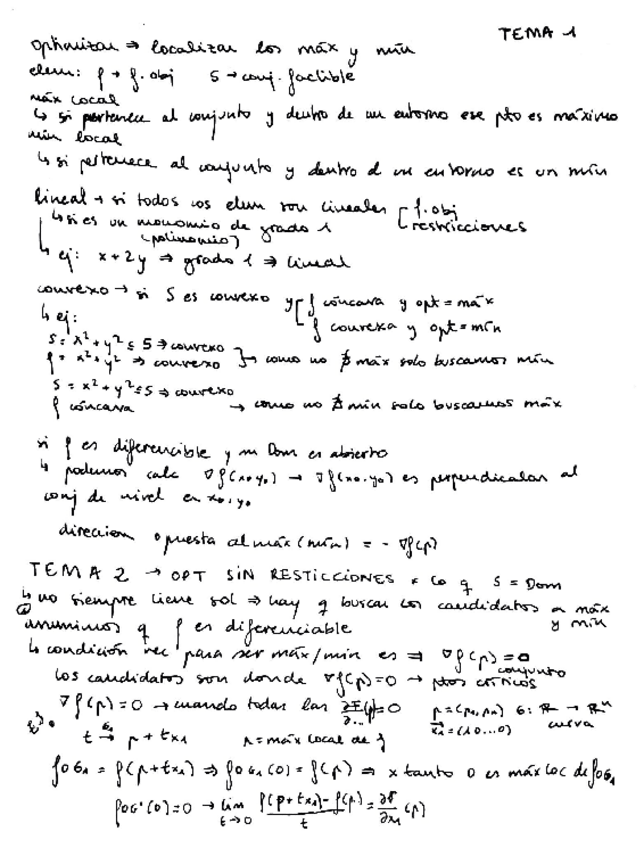 TEMA 1
optimizar ⇒ localizar los máx y mín
elem: f → f. obj S → conj. factible
máx local
↳ si pertenece al conjunto y dentro de un entorno ese pto es máximo
mín local
↳ si pertenece al conjunto y dentro d un entorno es un mín
lineal → si todos los elem son lineales [ f. obj
restricciones
↳ si es un monomio de grado 1
(polinomio)
↳ ej: x + 2y ⇒ grado 1 ⇒ lineal
convexo → si S es convexo y [ f cóncava y opt = máx
f convexa y opt = mín
↳ ej:
S = x² + y² ≤ 5 ⇒ convexo
f = x² + y² ⇒ convexo } → como no ∄ máx solo buscamos mín
S = x² + y² ≤ 5 ⇒ convexo
f cóncava → como no ∄ mín solo buscamos máx
si f es diferencible y su Dom es abierto
↳ podemos calc ∇f(x₀,y₀) → ∇f(x₀,y₀) es perpendicular al
conj de nivel en x₀,y₀
direccion opuesta al máx (mín) = - ∇f(p)
TEMA 2 → OPT SIN RESTICCIONES * lo q S = Dom
↳ no siempre tiene sol ⇒ hay q buscar los candidatos a máx
y mín
asumimos q f es diferenciable
↳ condición nec para ser máx/mín es ⇒ ∇f(p) = 0
los candidatos son donde ∇f(p) = 0 → conjunto
ptos críticos
∇f(p) = 0 → cuando todas las ∂F/∂... (p) = 0 p = (p₁, pₙ) G: ℝ → ℝⁿ
x₁ = (1 0 ... 0) curva
t →(G₁) p + tx₁ p = máx local de f
f∘G₁ = f(p + tx₁) ⇒ f∘G₁(0) = f(p) ⇒ x tanto 0 es máx loc de f∘G₁
f∘G'(0) = 0 → lim t→0 f(p + tx₁) - f(p) / t = ∂F/∂x₁ (p)